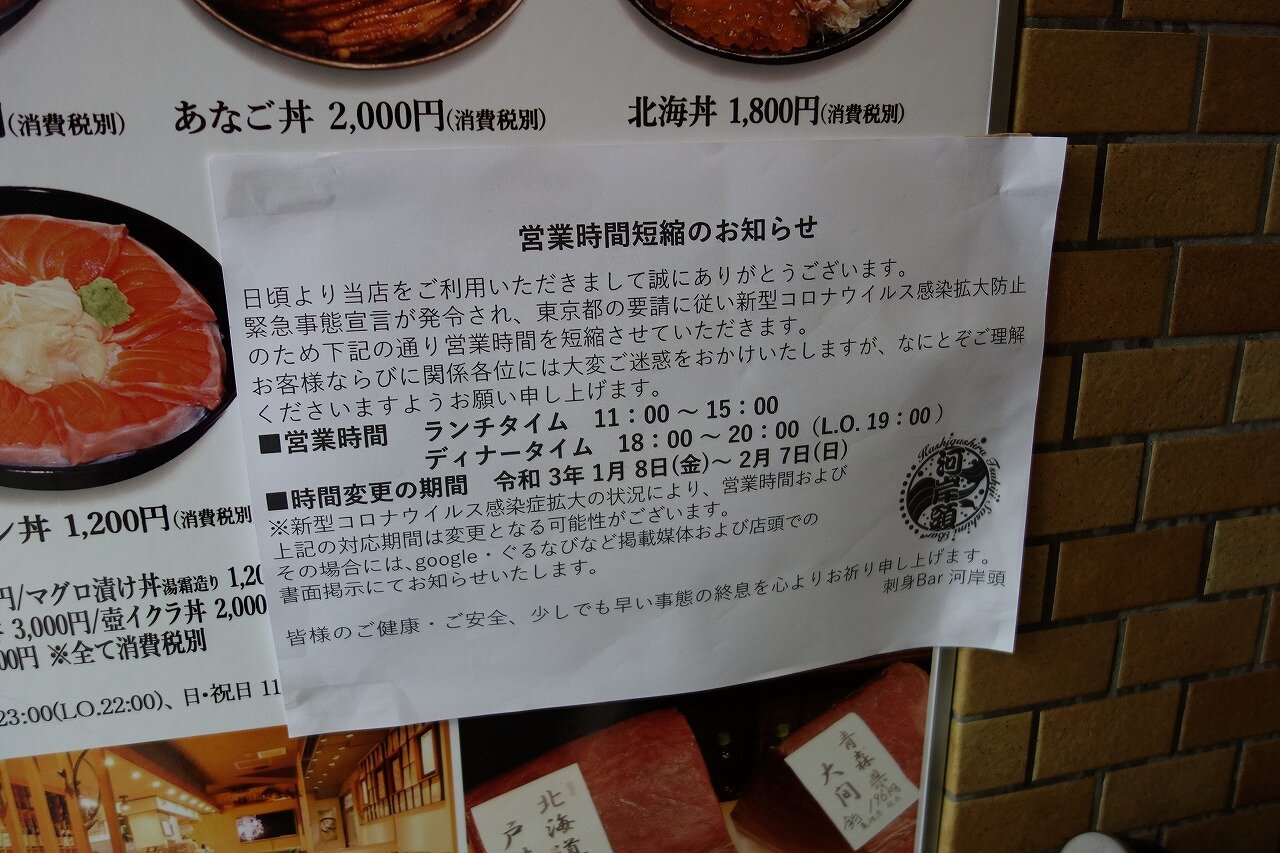 (消費税別)
あなご丼 2,000円(消費税別)
北海丼 1,800円(消費税別)
営業時間短縮のお知らせ
日頃より当店をご利用いただきまして誠にありがとうございます。
緊急事態宣言が発令され、東京都の要請に従い新型コロナウイルス感染拡大防止
のため下記の通り営業時間を短縮させていただきます。
お客様ならびに関係各位には大変ご迷惑をおかけいたしますが、なにとぞご理解
くださいますようお願い申し上げます。
■営業時間 ランチタイム 11:00~15:00
ディナータイム 18:00~20:00(L.O. 19:00)
■時間変更の期間 令和3年1月8日(金)~2月7日(日)
※新型コロナウイルス感染症拡大の状況により、営業時間および
上記の対応期間は変更となる可能性がございます。
その場合には、google・ぐるなびなど掲載媒体および店頭での
書面掲示にてお知らせいたします。
皆様のご健康・ご安全、少しでも早い事態の終息を心よりお祈り申し上げます。
刺身Bar 河岸頭
河岸頭
ン丼 1,200円(消費税別
円/マグロ漬け丼湯霜造り 1,20
3,000円/壺イクラ丼 2,000
00円 ※全て消費税別
23:00(LO.22:00)、日・祝日 11
北海道
戸
青森県
大間